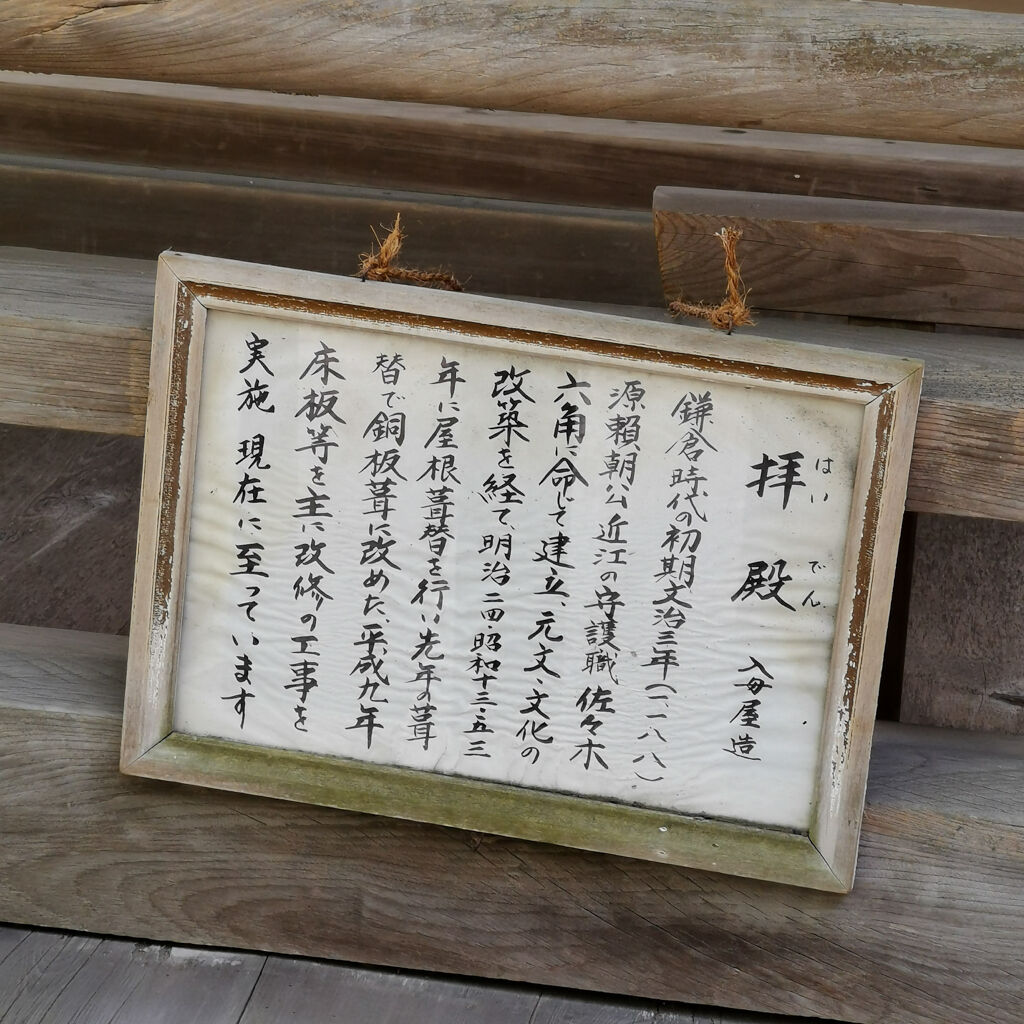 拝殿 入母屋造
はいでん
鎌倉時代の初期文治三年(一一八八)
源頼朝公近江の守護職佐々木
六角に命じて建立、元文・文化の
改築を経て、明治二四・昭和十三・五三
年に屋根葺替を行い先年の葺
替で銅板葺に改めた、平成九年
床板等を主に改修の工事を
実施 現在に至っています